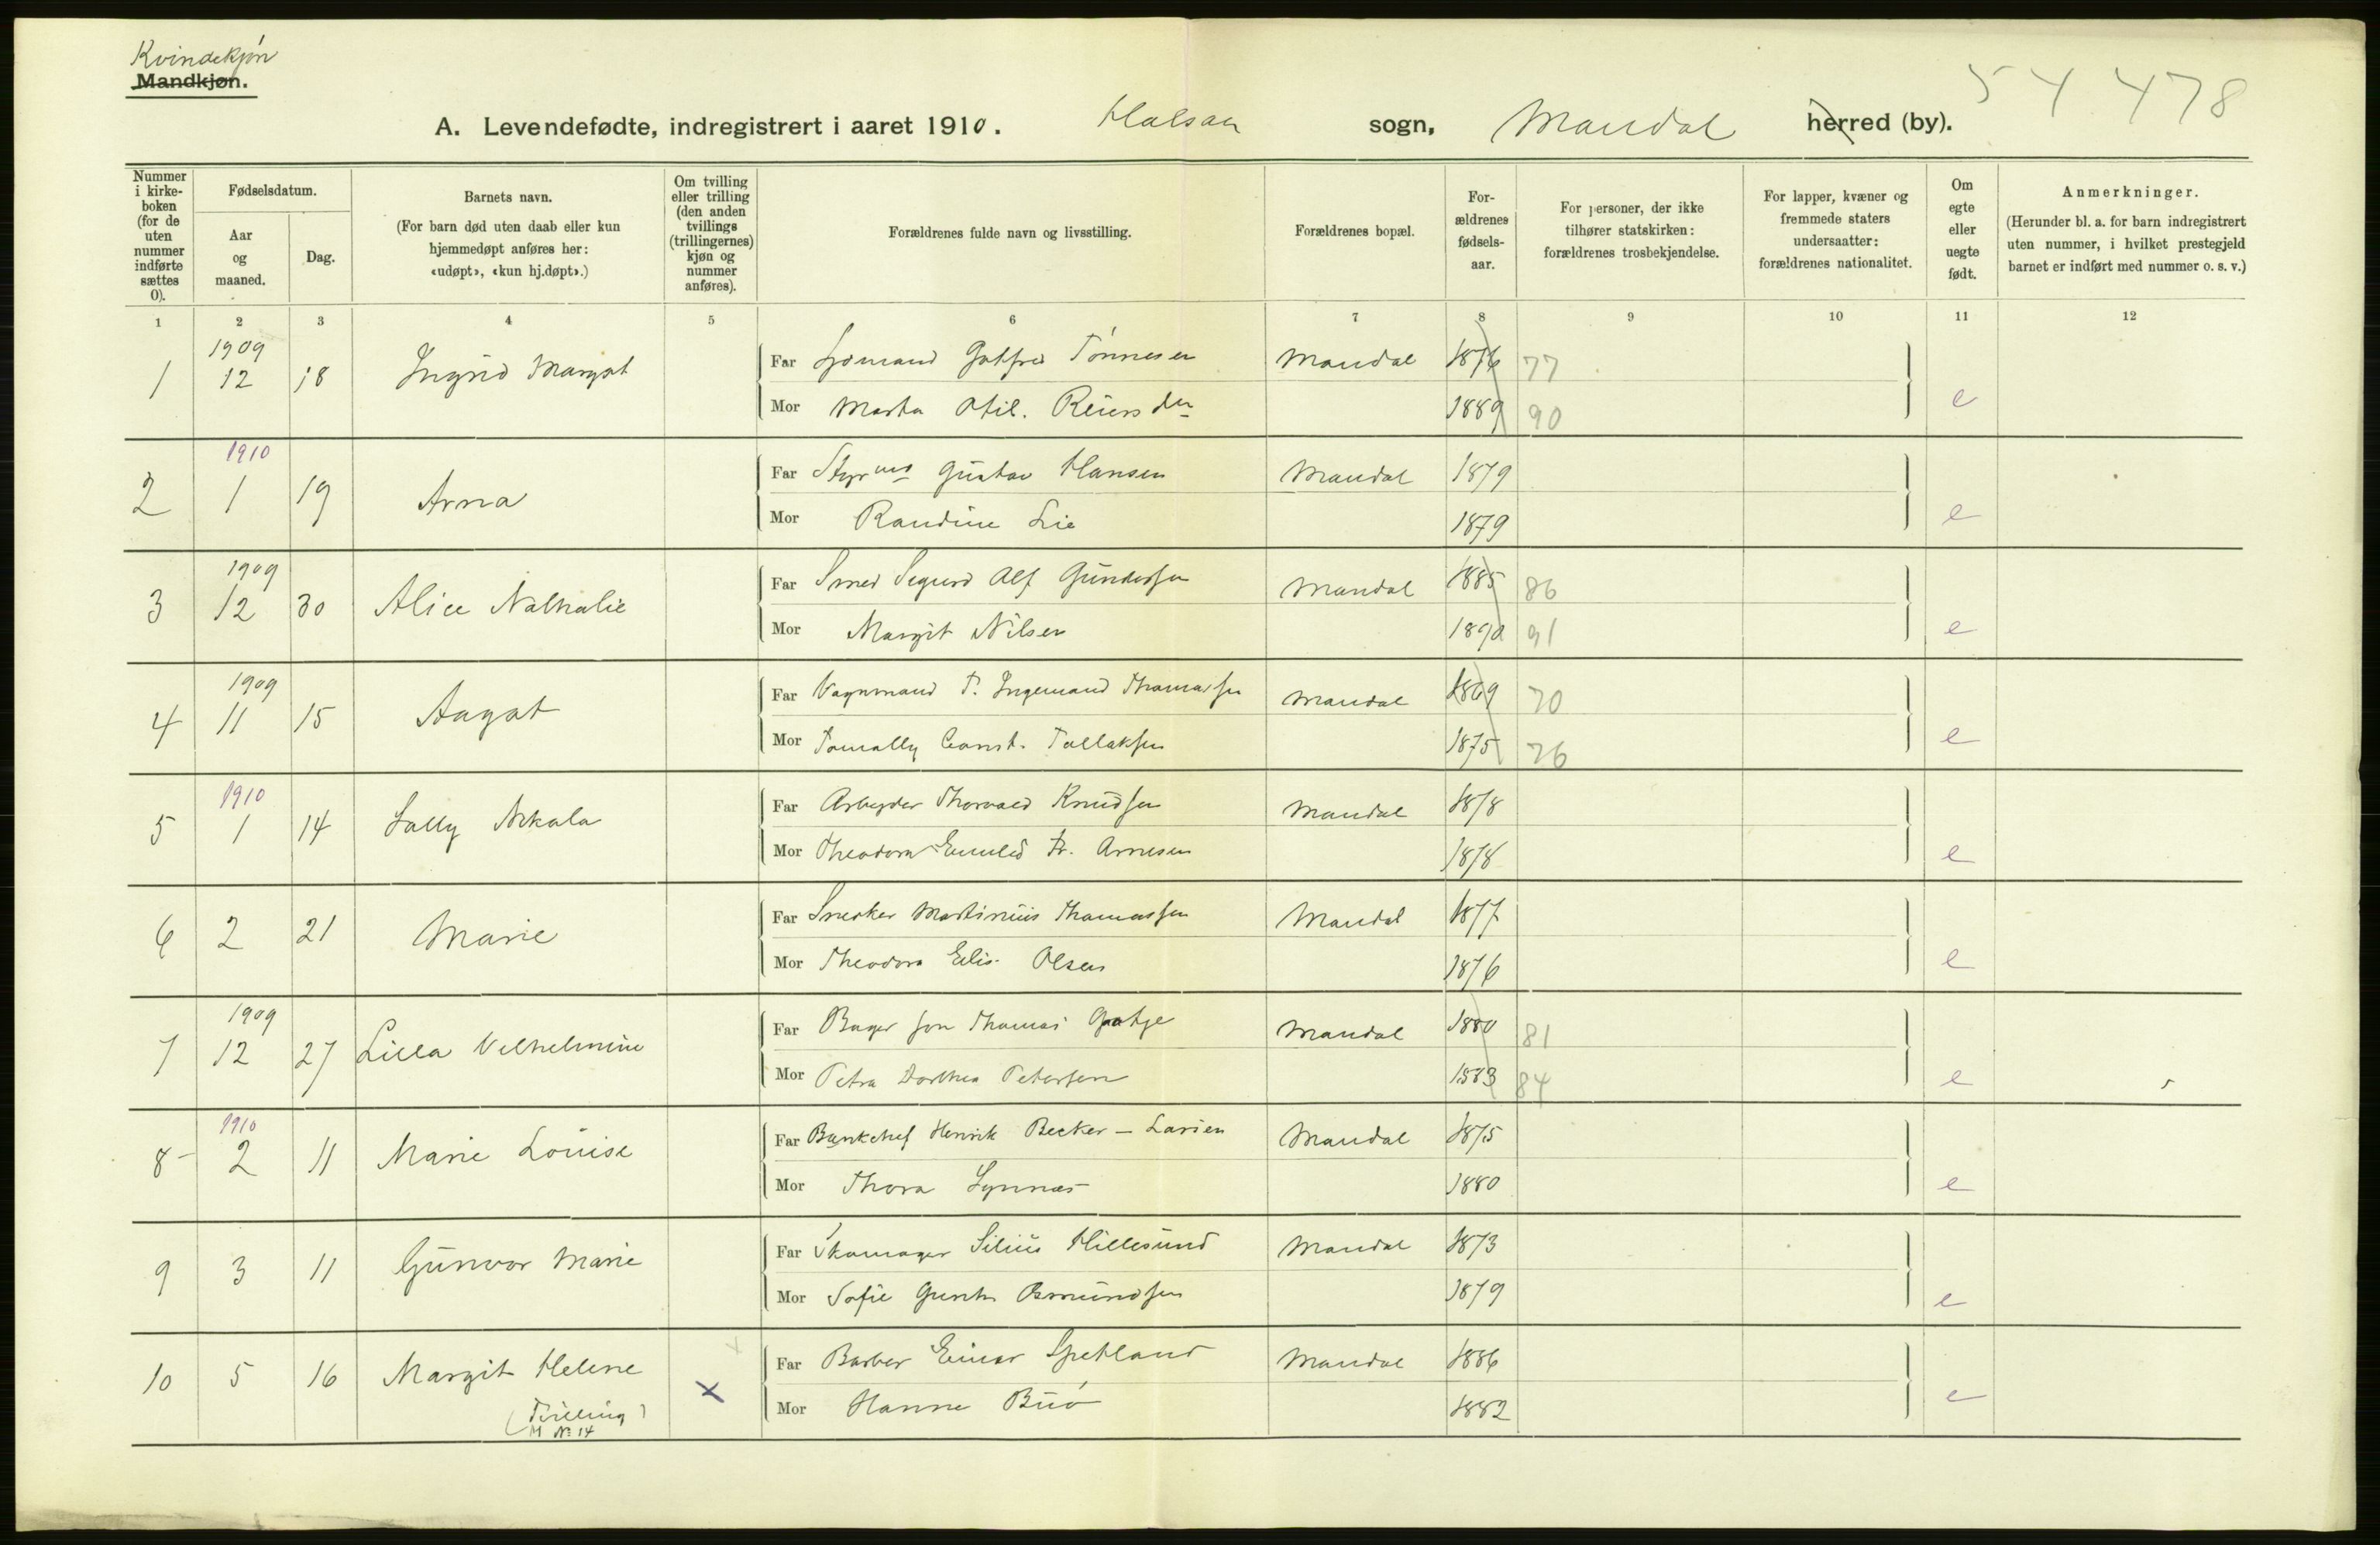 Kvindekjøn
Mandkjøn.
54 478
A. Levendefødte, indregistrert i aaret 1910. Halsaa sogn, Mandal herred (by).
Nummer i kirke-boken (for de uten nummer indførte sættes 0).
Fødselsdatum.
Aar og maaned.
Dag.
Barnets navn.
(For barn død uten daab eller kun hjemmedøpt anføres her: «udøpt», «kun hj.døpt».)
Om tvilling eller trilling (den anden tvillings (trillingernes) kjøn og nummer anføres).
Forældrenes fulde navn og livsstilling.
Forældrenes bopæl.
For-ældrenes fødsels-aar.
For personer, der ikke tilhører statskirken: forældrenes trosbekjendelse.
For lapper, kvæner og fremmede staters undersaatter: forældrenes nationalitet.
Om egte eller uegte født.
Anmerkninger.
(Herunder bl. a. for barn indregistrert uten nummer, i hvilket prestegjeld barnet er indført med nummer o. s. v.)
1 2 3 4 5 6 7 8 9 10 11 12
1909
1 12 18 Ingrid Margot Far Sjømand Gotfred Tønnesen Mandal 1876 77
Mor Marta Otil. Reiersdn 1889 90 e
1910
2 1 19 Arna Far Styrmd Gustav Hansen Mandal 1879
Mor Randine Lie 1879 e
1909
3 12 30 Alice Nathalie Far Smed Sigurd Alf Gundersen Mandal 1885 86
Mor Margit Nilsen 1890 91 e
1909
4 11 15 Aagot Far Vognmand T. Ingemand Thomassen Mandal 1869 70
Mor Const. Tallaksen 1875 76 e
1910
5 1 14 Sally Far Arbeyder Thorvald Knudsen Mandal 1878
Mor Theodora Arnesen 1878 e
6 2 21 Marie Far Snedker Martinius Thomassen Mandal 1877
Mor Theodora Elis. Olsen 1876 e
1909
7 12 27 Lilla Vilhelmine Far Bager Thomas Mandal 1880 81
Mor Petra Dorthea Petersen 1883 84 e
1910
8 2 11 Marie Louise Far Bankchef Henrik Becker - Larsen Mandal 1875
Mor Thora 1880 e
9 3 11 Gunvor Marie Far Skomager Silius Hillesund Mandal 1873
Mor Sofie Osmundsen 1879 e
10 5 16 Margit Helene x Far Barber Einar Mandal 1886
(Tvilling) Mor Hanne Buø 1882 e
M No 14